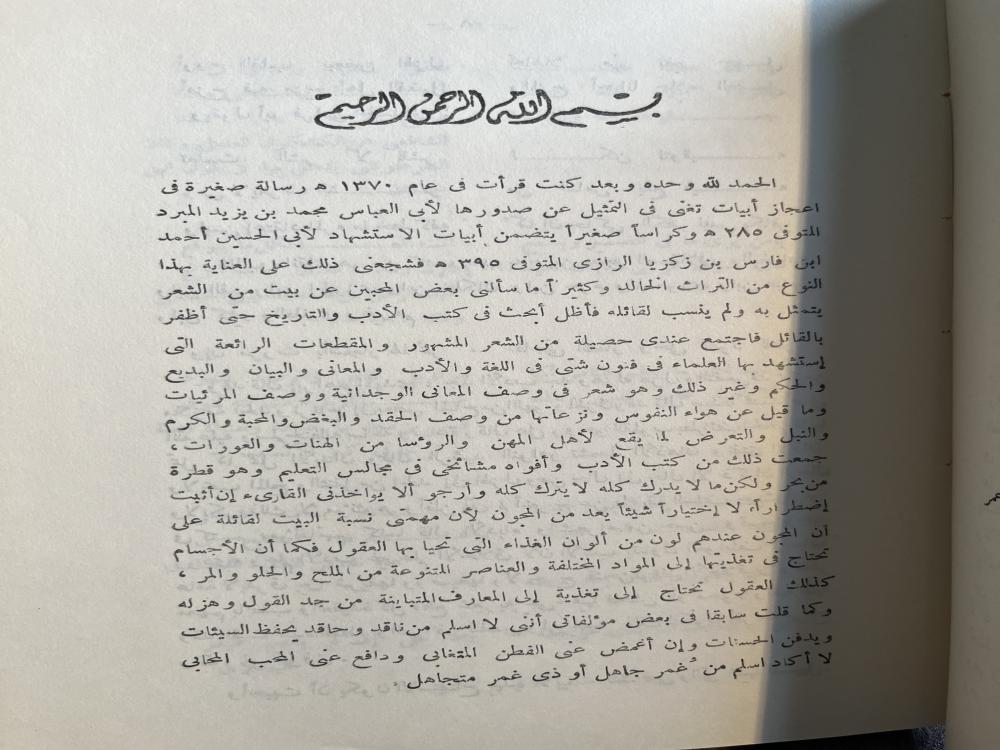 بسم الله الرحمن الرحيم
الحمد لله وحده وبعد كنت قرأت فى عام ١٣٧٠ ه رسالة صغيرة فى
اعجاز أبيات تغنى فى التمثيل عن صدورها لأبي العباس محمد بن يزيد المبرد
المتوفى ٢٨٥ ه وكراساً صغيراً يتضمن أبيات الاستشهاد لأبي الحسين أحمد
ابن فارس بن زكزيا الرازى المتوفى ٣٩٥ ه فشجعنى ذلك على العناية بهذا
النوع من التراث الخالد وكثيراً ما سألنى بعض المحبين عن بيت من الشعر
يتمثل به ولم ينسب لقائله فأظل أبحث فى كتب الأدب والتاريخ حتى أظفر
بالقائل فاجتمع عندى حصيلة من الشعر المشهور والمقطعات الرائعة التى
إستشهد بها العلماء فى فنون شتى فى اللغة والأدب والمعانى والبيان والبديع
والحكم وغير ذلك وهو شعر فى وصف المعانى الوجدانية ووصف المرئيات
وما قيل عن هواء النفوس ونزعاتها من وصف الحقد والبغض والمحبة والكرم
والنبل والتعرض لما يقع لأهل المهن والرؤسا من الهنات والعورات ،
جمعت ذلك من كتب الأدب وأفواه مشائخى فى مجالس التعليم وهو قطرة
من بحر ولكن ما لا يدرك كله لا يترك كله وأرجو ألا يواخذنى القارىء إن أثبت
إضطراراً، لا إختياراً شيئاً يعد من المجون لأن مهمتى نسبة البيت لقائلة على
ان المجون عندهم لون من ألوان الغذاء التى تحيا بها العقول فكما أن الأجسام
تحتاج فى تغذيتها إلى المواد المختلفة والعناصر المتنوعة من الملح والحلو والمر ،
كذلك العقول تحتاج إلى تغذية إلى المعارف المتباينة من جد القول وهزله
وكما قلت سابقا فى بعض مؤلفاتى أننى لا اسلم من ناقد وحاقد يحفظ السيئات
ويدفن الحسنات وإن أغمض عنى الفطن المتغابى ودافع عنى المحب المحابى
لا أكاد اسلم من غُمر جاهل أو ذى غمر متجاهل .